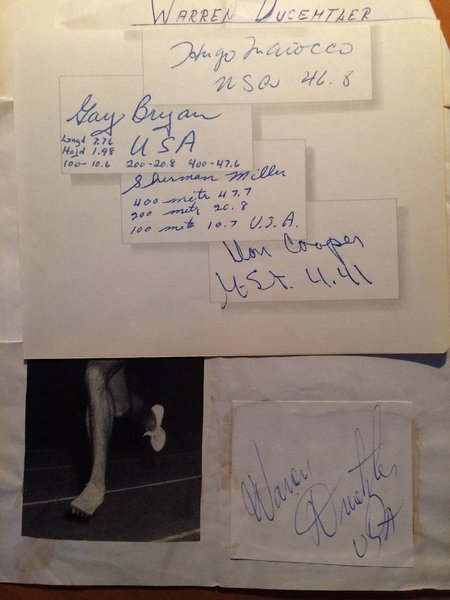 WARREN DUCEHTLER
Hugo Maiocco
USA 46.8
Gay Bryan
Längd 7.76
USA
Höjd 1.98
100-10.6 200-20.8 400-47.6
Sherman Miller
400 metr 47.7
200 metr 20.8
100 metr 10.7 U.S.A.
Don Cooper
4.41
USA